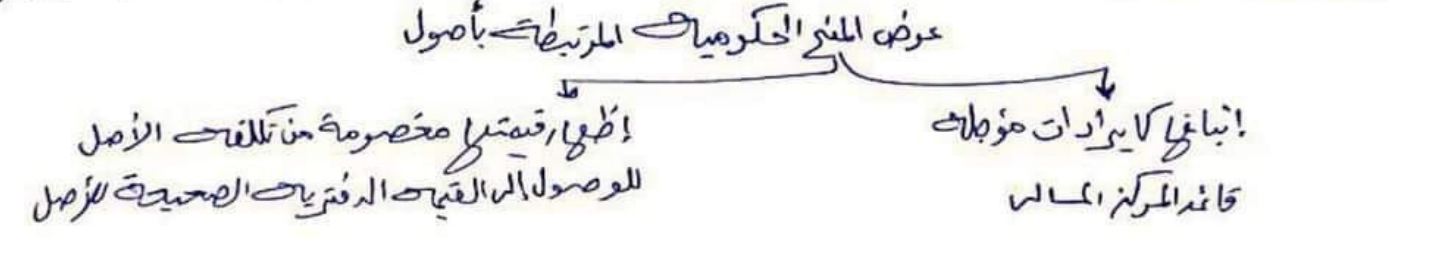 عرض المنح الحكومية المرتبطة بأصول
إثباتها كإيرادات مؤجلة
المركز المالى
إظهار قيمتها مخصومة من تكلفة الأصل
للوصول إلى القيمة الدفترية الصحيحة للأصل